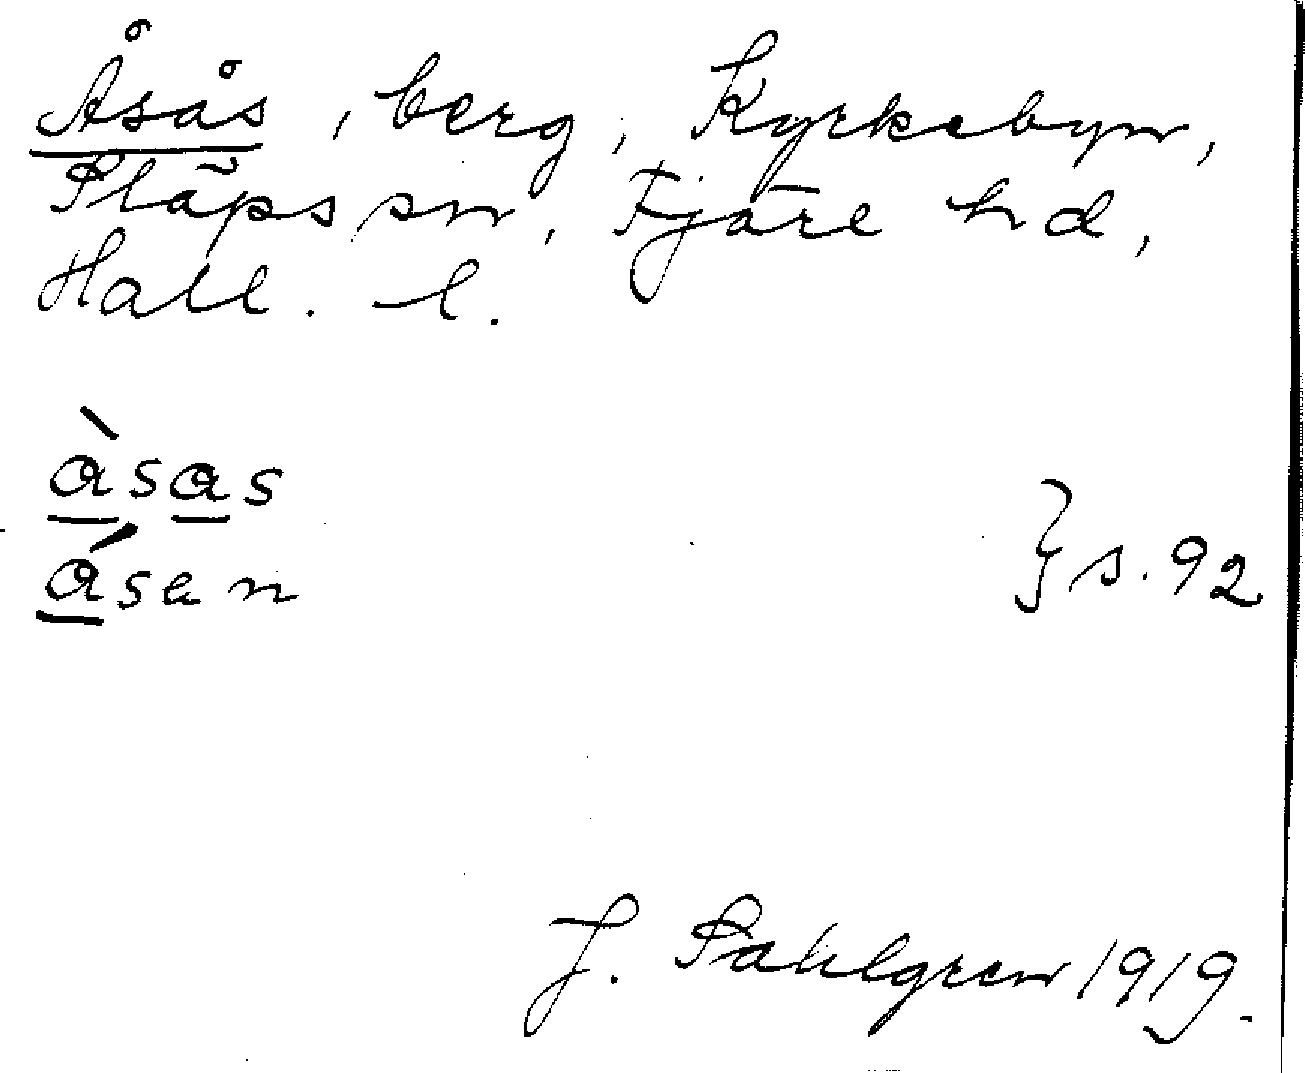 Åsås, berg, Kyrkebyn,
Släps sn, Fjäre hd,
Hall. l.
àsas
ásen } s. 92
J. Sahlgren 1919.